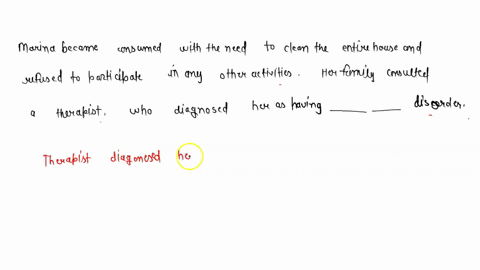 Marina became consumed with the need to clean the entire house and
refused to participate in any other activities. Her family consulted
a therapist, who diagnosed her as having ____ ____ disorder.
Therapist diagonesed he